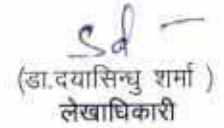 Sd
(डा.दयासिन्धु शर्मा )
लेखाधिकारी